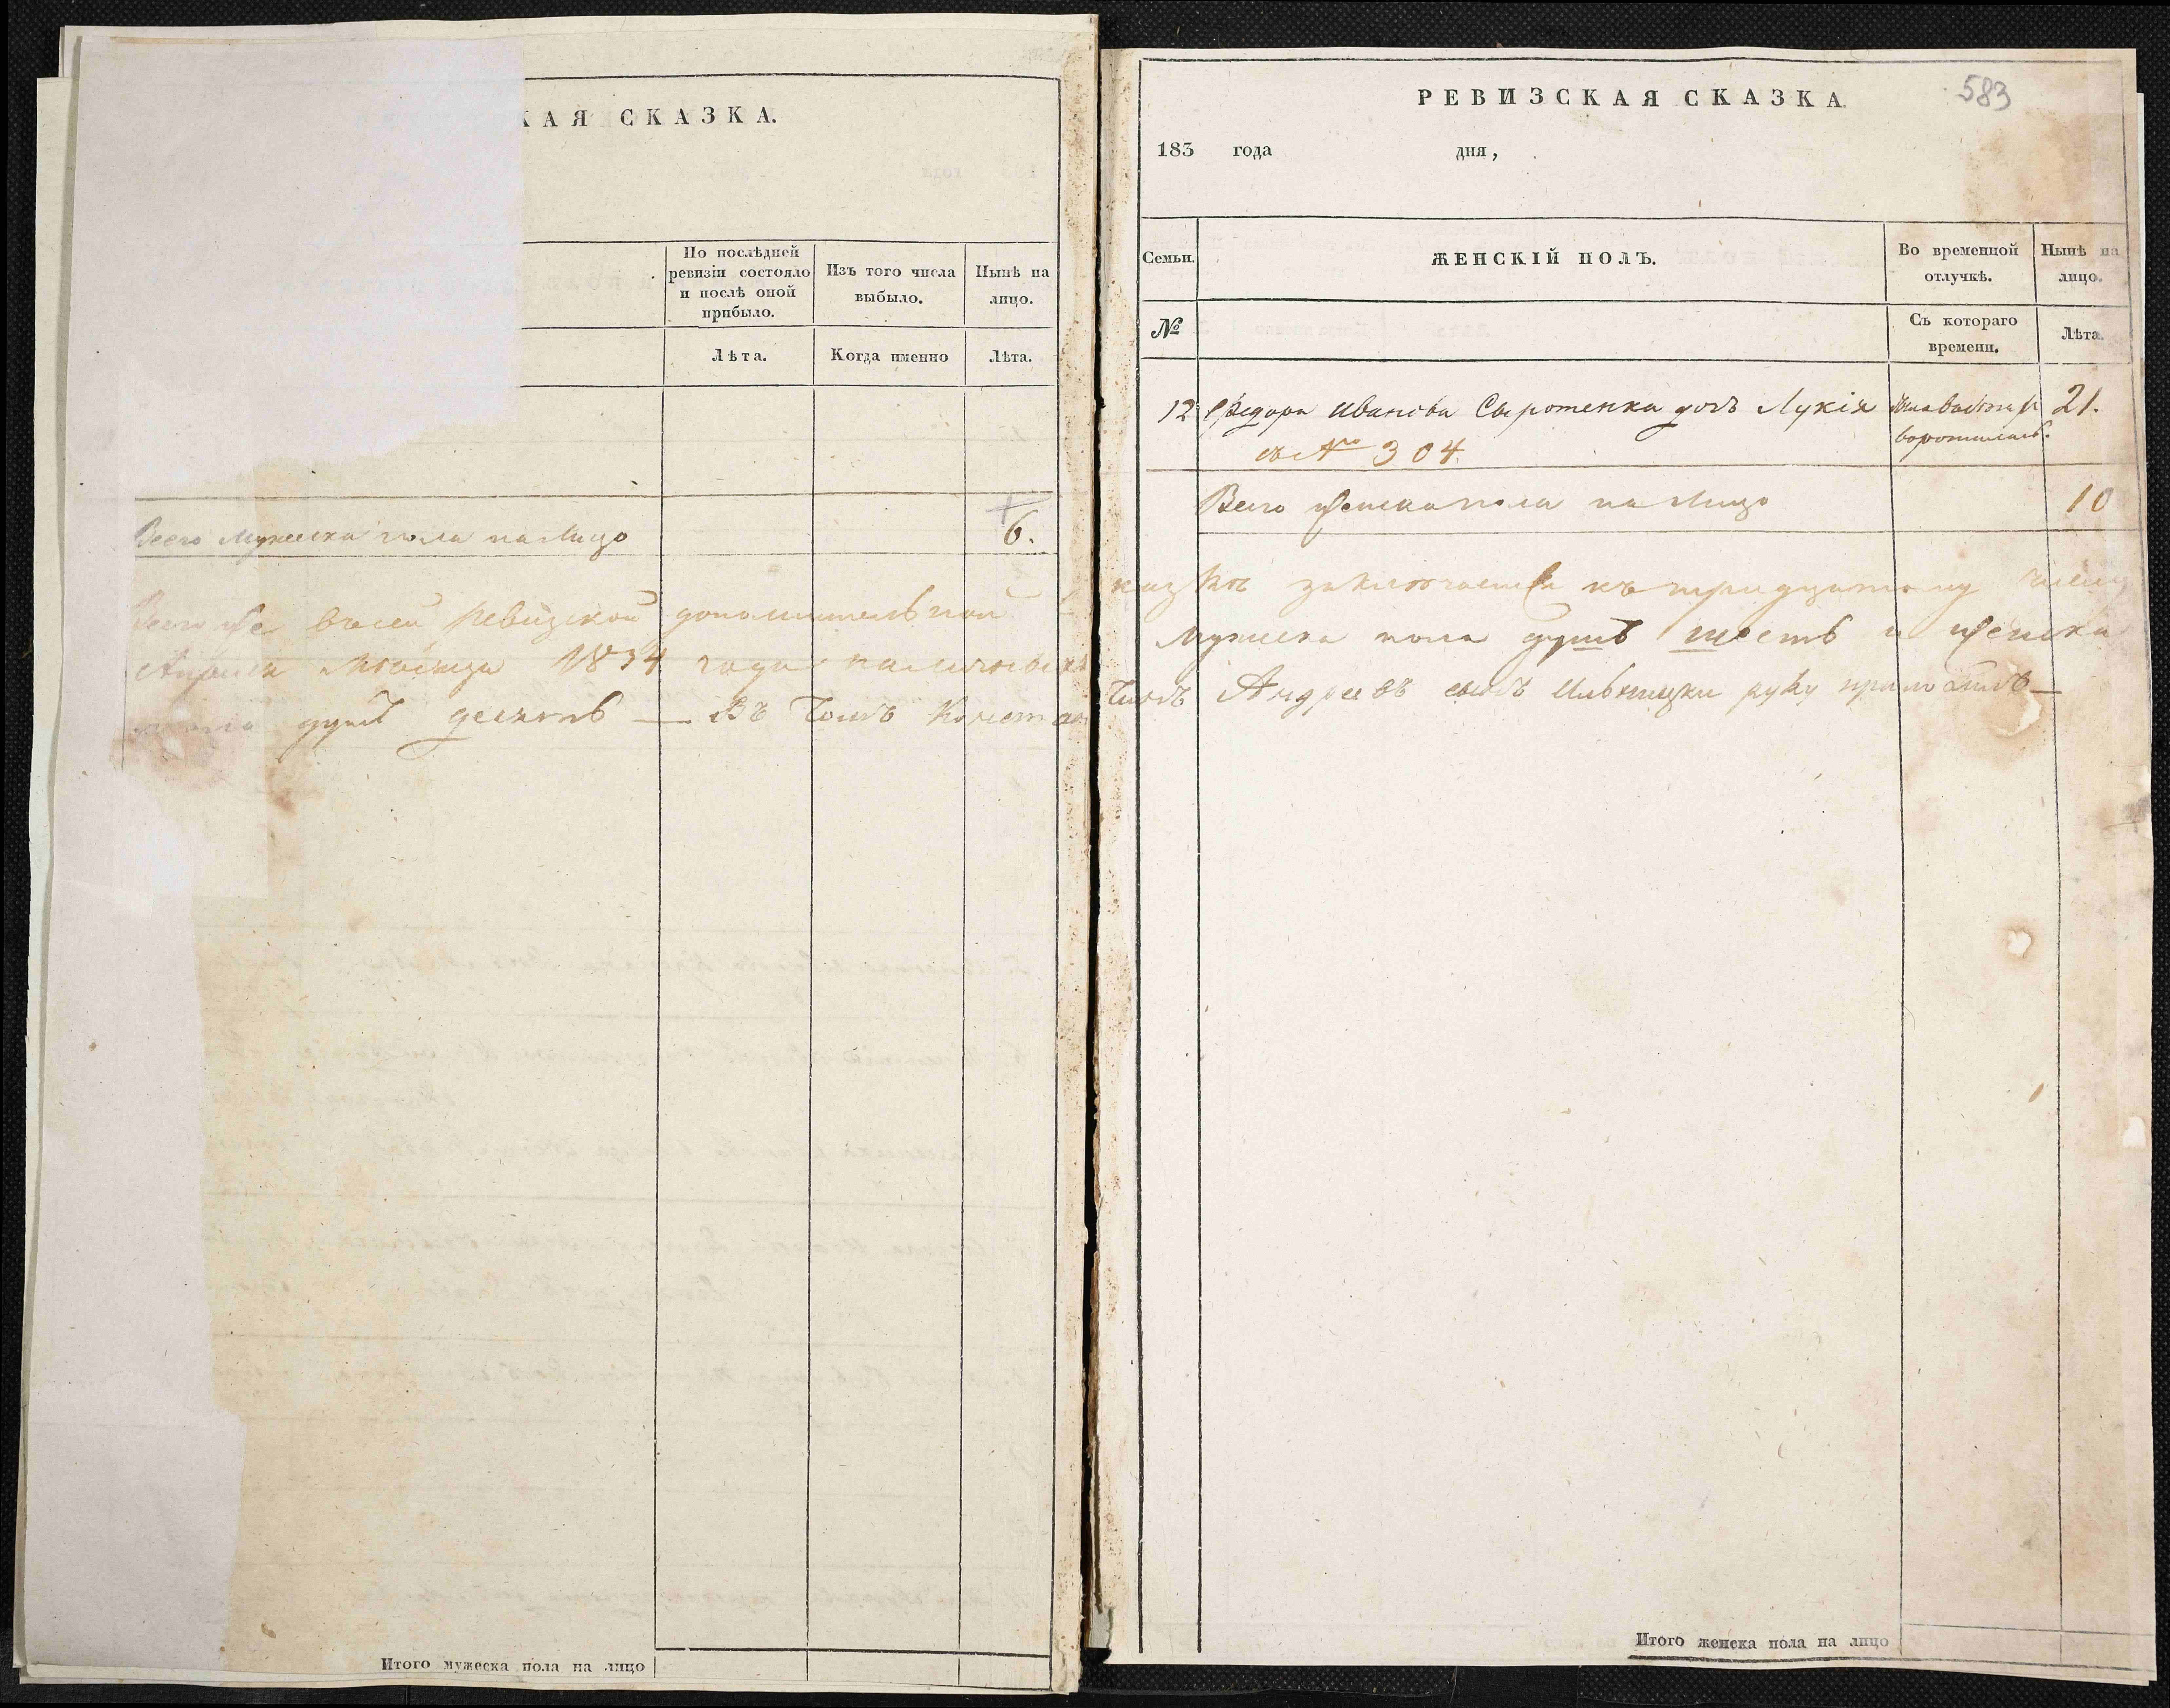 КАЯ СКАЗКА.
По послѣдней
ревизіи состояло
и послѣ оной
прибыло.
Изъ того числа
выбыло.
Нынѣ на
лицо.
Лѣта.
Когда именно
Лѣта.
Всего мужеска пола на лицо
6.
Всего же въ сей ревизской дополнительной
Апреля месяца 1834 года наличныхъ
душъ десять — Въ томъ
Итого мужеска пола на лицо
583
РЕВИЗСКАЯ СКАЗКА
183 года дня,
Семьи.
ЖЕНСКІЙ ПОЛЪ.
Во временной
отлучкѣ.
Нынѣ на
лицо.
№
Съ котораго
времени.
Лѣта.
12 Федора Иванова Сыротенка дочь Лукія 21.
№ 304.
Всего женска пола на лицо 10
заключается къ тридцатому числу
мужеска пола душъ шесть и женска
Андреевъ сынъ руку приложилъ —
Итого женска пола на лицо